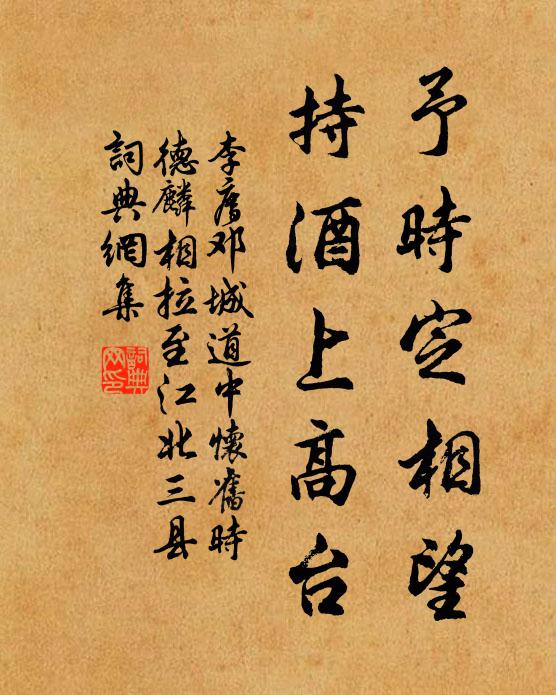 予時定相望
持酒上高台
李廌邓城道中懷舊時
德麟相拉至江北三县
詞典網集
詞典网印